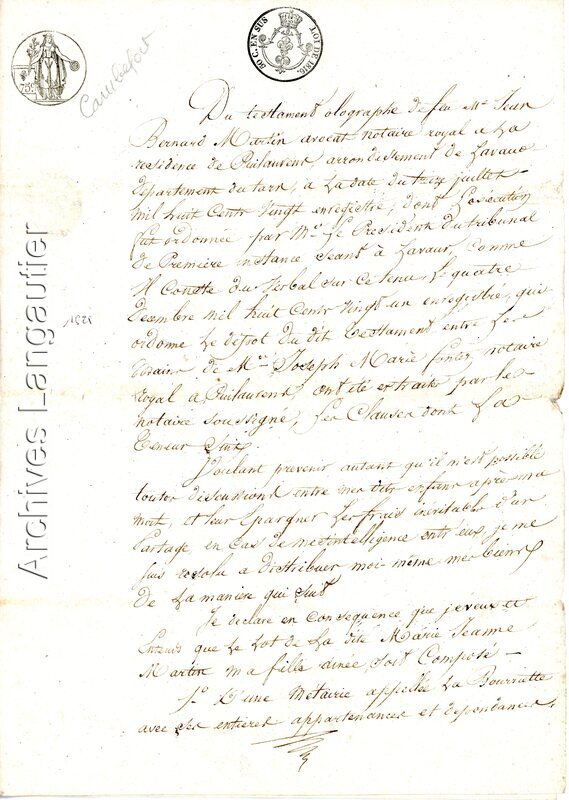 50 C. EN SUS
LOI DE 1816
75
Cambefort
Du testament olographe de feu Mr. Jean
Bernard Martin avocat notaire royal a La
residence de Puilaurens arrondissement de Lavaur
departement du tarn, a La date du treize juillet
mil huit Cents Vingt enregistré, dont L'execution
fut ordonnée par Mr. Le President du tribunal
de Premiere instance seant à Lavaur, Comme
Il Conste du Verbal sur Ce tenu, Le quatre
decembre mil huit Cents Vingt un enregistré, qui
ordonne Le depot du dit testament entre Les
mains de Me. Joseph Marie notaire
royal a Puilaurens, ont été extraits par Le
notaire soussigné, Les Clauses dont La
teneur suit.
Voulant prevenir autant qu'il m'est possible
toutes discussions entre mes dits enfans après ma
mort, et leur Epargner Les frais inevitables d'un
Partage, en Cas de mesintelligence entr'eux, je me
suis resolu a distribuer moi-même mes biens
de La maniere qui suit
Je declare en Consequence que je veux et
Entends que Le Lot de La dite Marie Jeanne
Martin ma fille ainée, soit Composé —
1o. D'une Métairie appellée La Bourriette
avec ses entieres appartenances et dependances,
1821
Archives Langautier